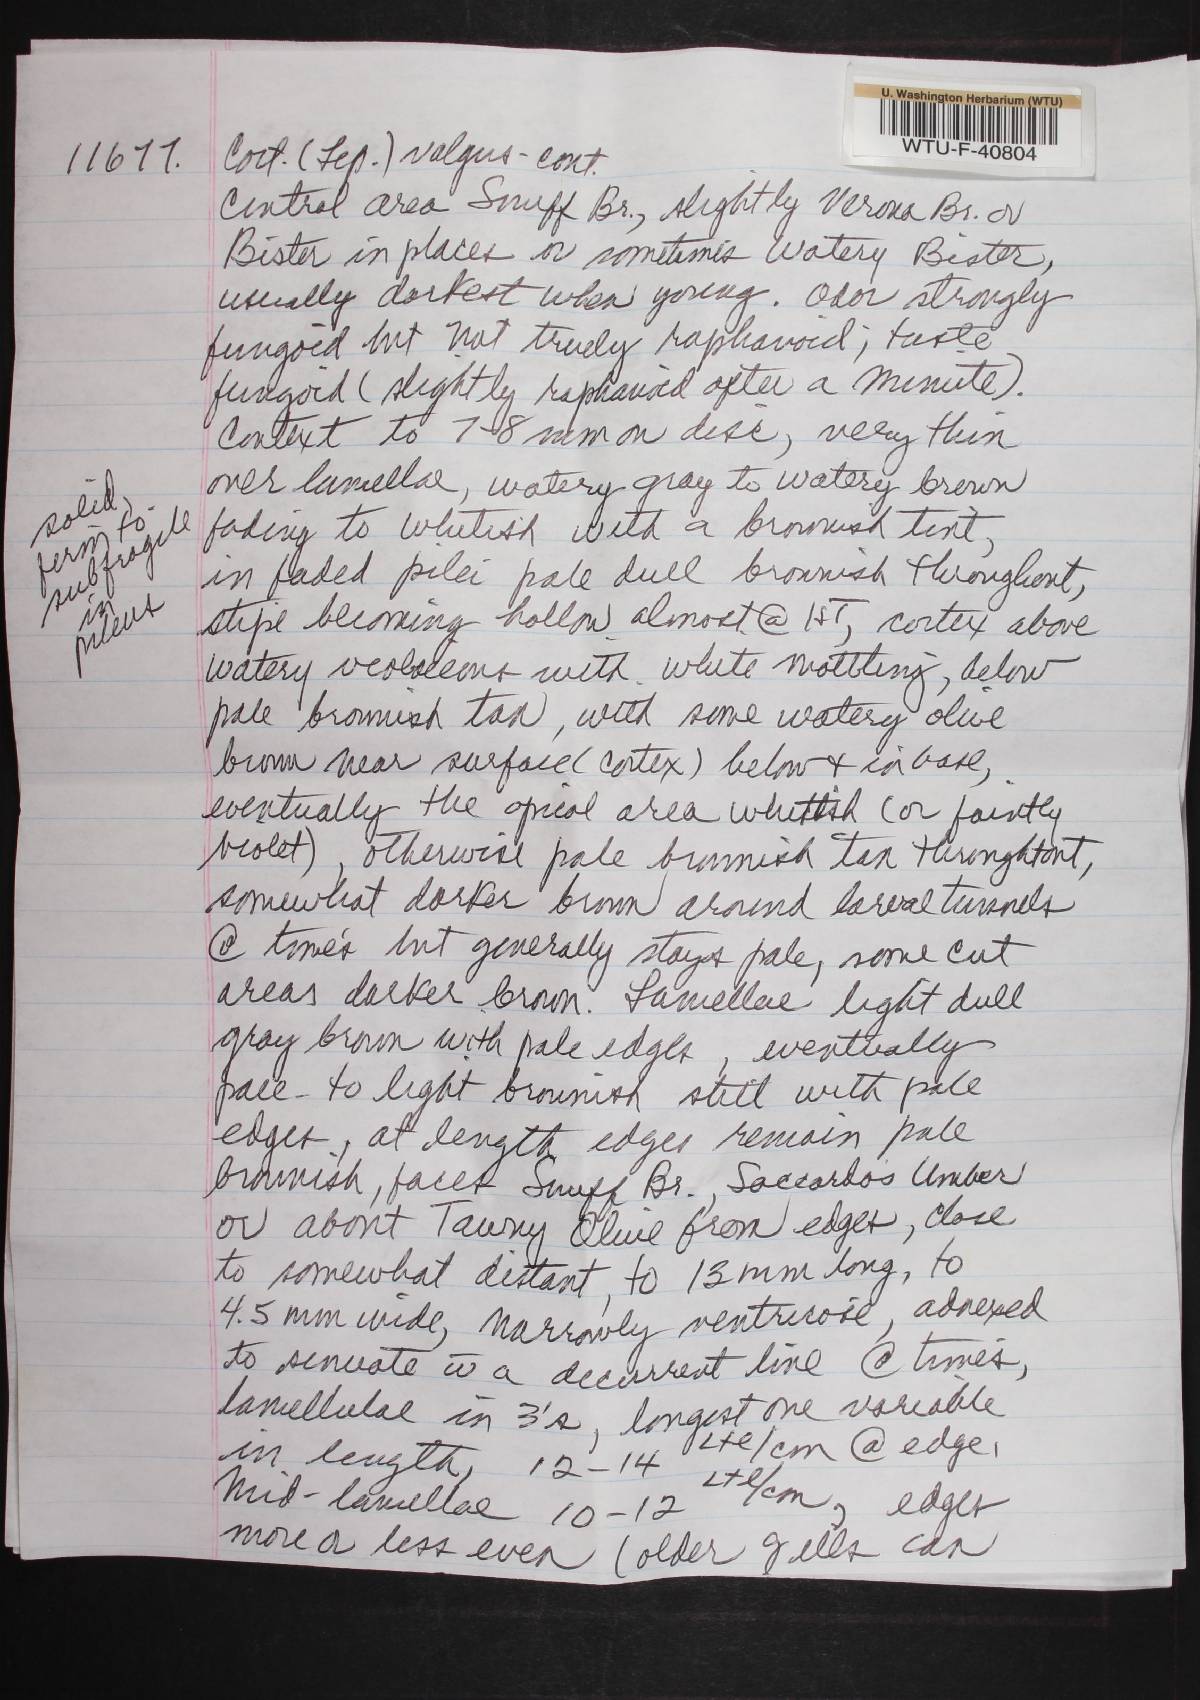 U. Washington Herbarium (WTU)
WTU-F-40804
11677. Cort. (Lep.) valgus - cont.
Central area Snuff Br., slightly Verona Br. or
Bister in places or sometimes watery Bister,
usually darkest when young. Odor strongly
fungoid but not truely raphanoid; taste
fungoid (slightly raphanoid after a minute).
Context to 7-8 mm on disc, very thin
over lamellae, watery gray to watery brown
fading to whitish with a brownish tint,
in faded pilei pale dull brownish throughout,
stipe becoming hollow almost @ 1ST, cortex above
watery violaceous with white mottling, below
pale brownish tan, with some watery olive
brown near surface (cortex) below + in base,
eventually the apical area whitish (or faintly
violet), otherwise pale brownish tan throughout,
somewhat darker brown around larval tunnels
@ times but generally stays pale, some cut
areas darker brown. Lamellae light dull
gray brown with pale edges, eventually
pale- to light brownish still with pale
edges, at length edges remain pale
brownish, faces Snuff Br., Saccardo's Umber
or about Tawny Olive from edges, close
to somewhat distant, to 13 mm long, to
4.5 mm wide, narrowly ventricose, adnexed
to sinuate w a decurrent line @ times,
lamellulae in 3's, longest one variable
in length, 12-14 L+l/cm @ edge,
Mid-lamellae 10-12 L+l/cm, edges
more or less even (older gills can
solid,
firm to
subfragile
in
pileus